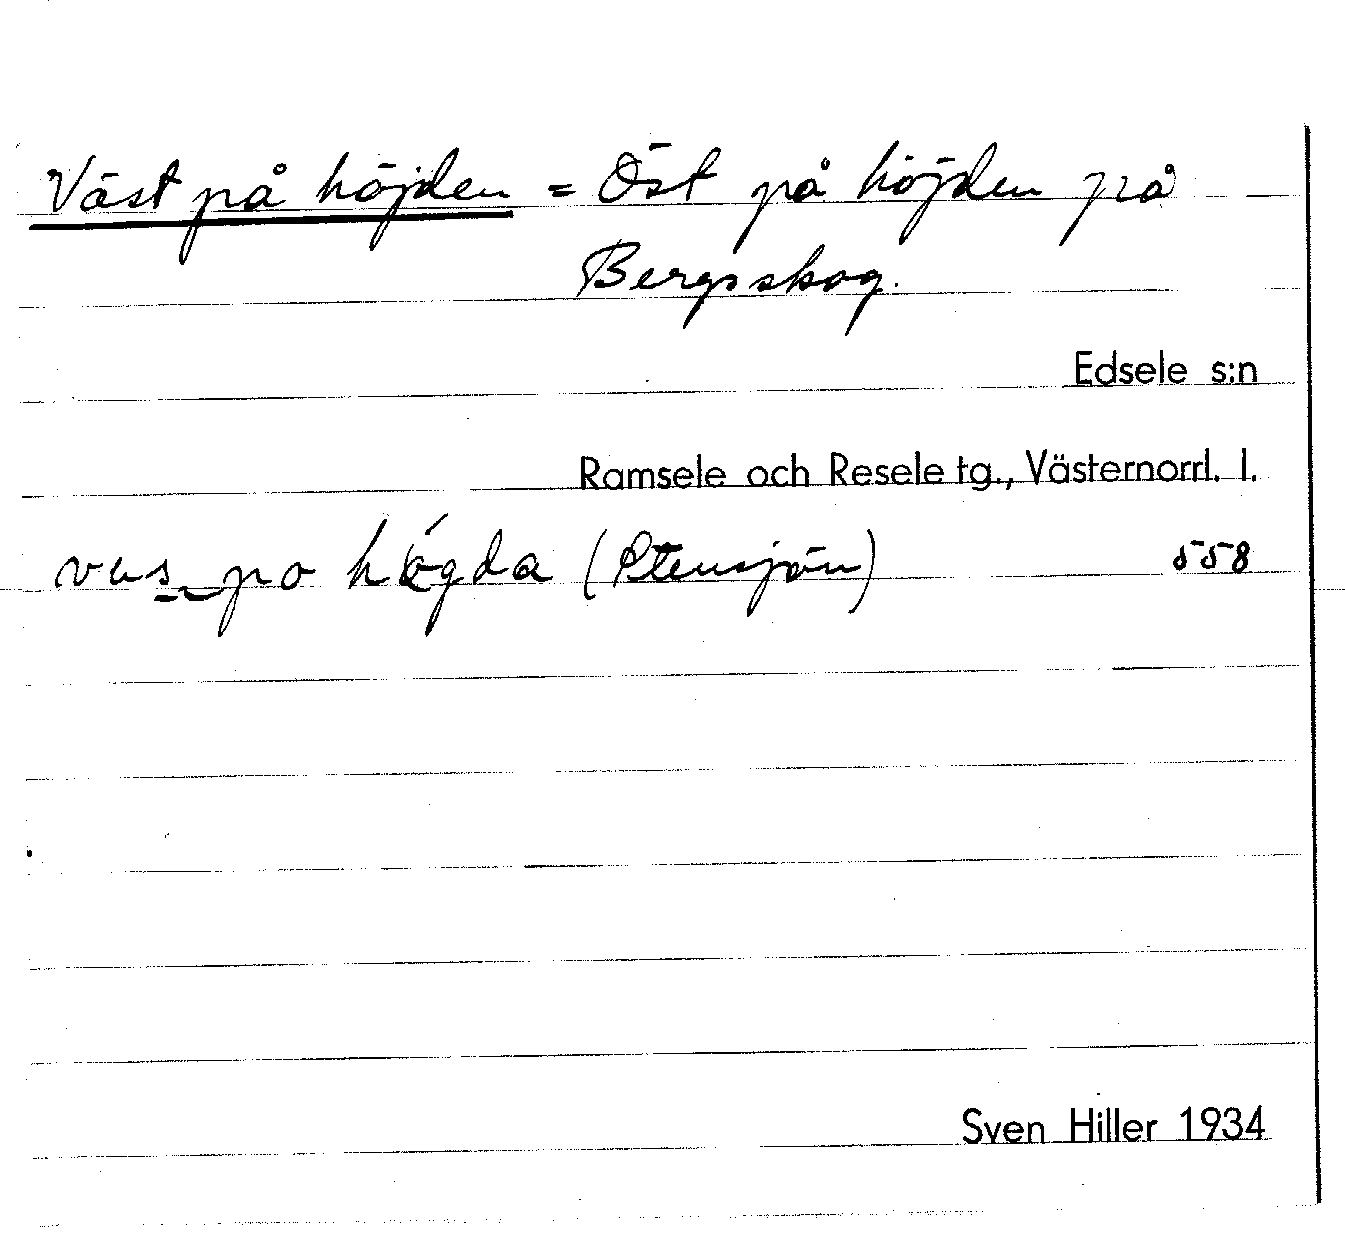 Väst på höjden = Öst på höjden på
Bergsskog.
Edsele s:n
Ramsele och Resele tg., Västernorrl. l.
po högda (Stensjön) 558
Sven Hiller 1934